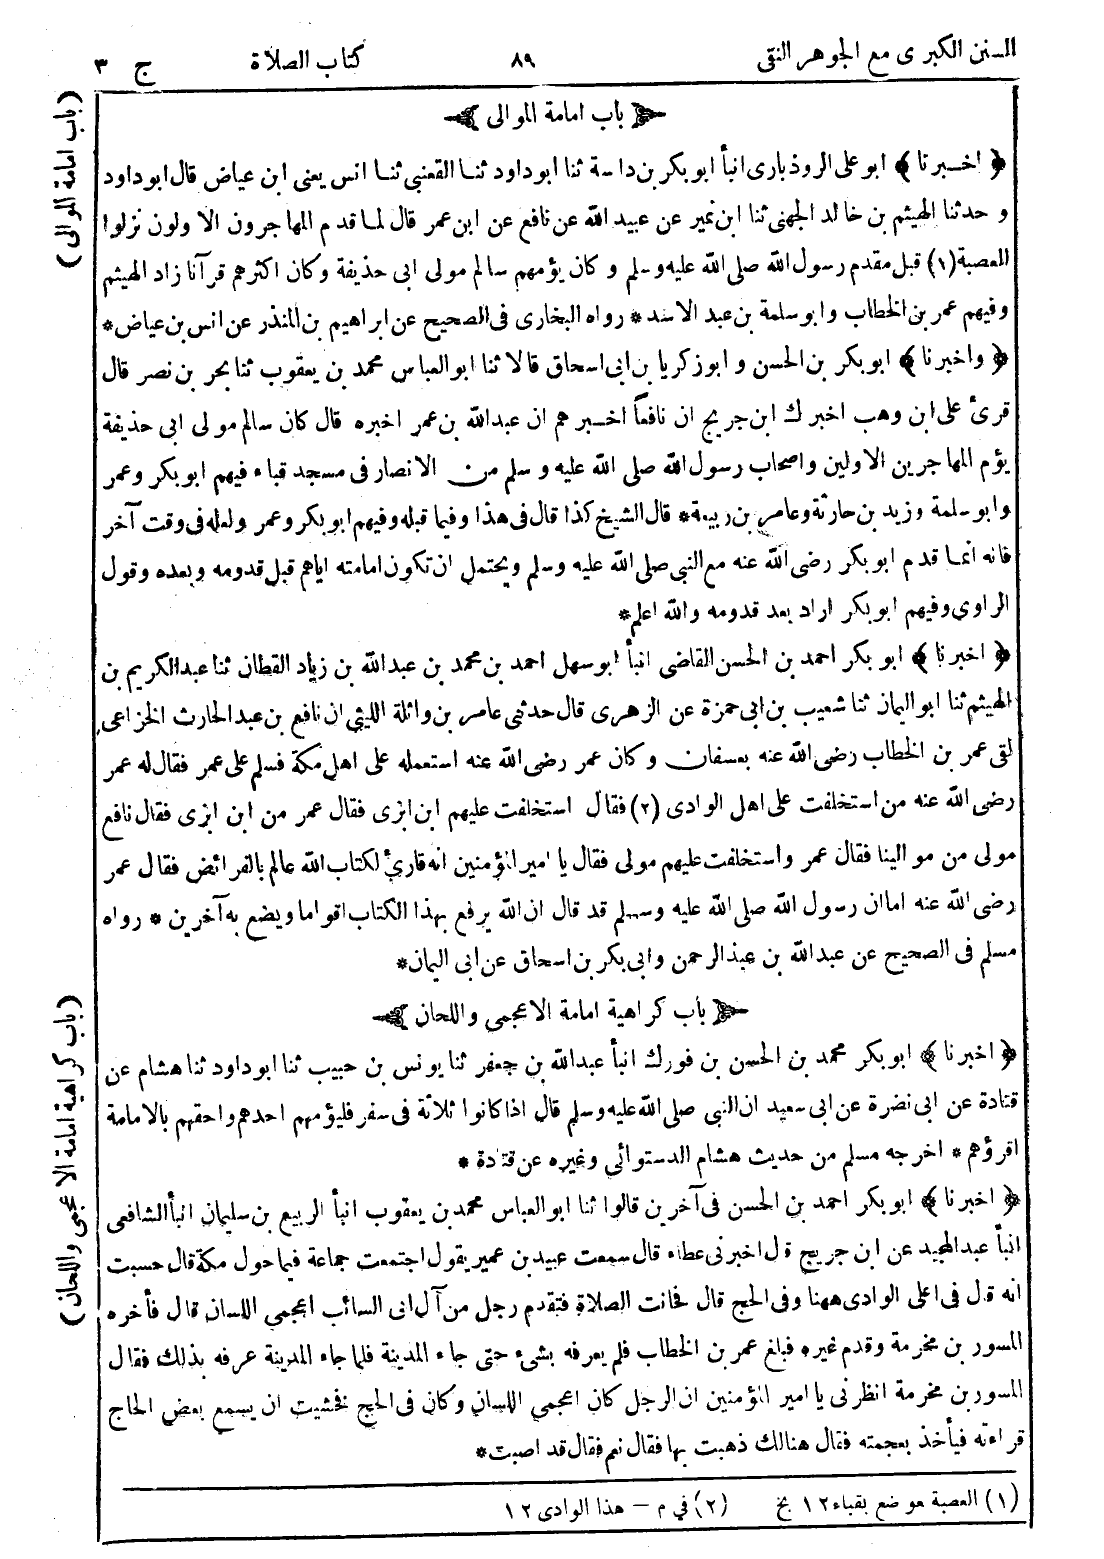 السنن الكبرى مع الجوهر النقى ٨٩ كتاب الصلاة ج ٣
باب امامة الموالى
(باب امامة الموالى)
﴿ اخبرنا ﴾ ابو على الروذبارى انبأ ابوبكر بن داسة ثنا ابو داود ثنا القعنبي ثنا انس يعنى ابن عياض قال ابو داود
و حدثنا الهيثم بن خالد الجهنى ثنا ابن نمير عن عبيد الله عن نافع عن ابن عمر قال لما قدم المهاجرون الاولون نزلوا
العصبة (١) قبل مقدم رسول الله صلى الله عليه وسلم و كان يؤمهم سالم مولى ابى حذيفة وكان اكثرهم قرآنا زاد الهيثم
وفيهم عمر بن الخطاب وابو سلمة بن عبد الاسد * رواه البخارى فى الصحيح عن ابراهيم بن المنذر عن انس بن عياض *
﴿ واخبرنا ﴾ ابو بكر بن الحسن و ابو زكريا بن ابى اسحاق قالا ثنا ابو العباس محمد بن يعقوب ثنا بحر بن نصر قال
قرئ على ابن وهب اخبرك ابن جريج ان نافعاً اخبرهم ان عبد الله بن عمر اخبره قال كان سالم مولى ابى حذيفة
يؤم المهاجرين الاولين واصحاب رسول الله صلى الله عليه و سلم من الانصار فى مسجد قباء فيهم ابو بكر وعمر
وابو سلمة وزيد بن حارثة وعامر بن ربيعة * قال الشيخ كذا قال فى هذا وفيما قبله وفيهم ابو بكر وعمر ولعله فى وقت آخر
فانه انما قدم ابو بكر رضى الله عنه مع النبي صلى الله عليه وسلم ويحتمل ان تكون امامته اياهم قبل قدومه وبعده وقول
الراوي وفيهم ابو بكر اراد بعد قدومه والله اعلم *
﴿ اخبرنا ﴾ ابو بكر احمد بن الحسن القاضى انبأ ابو سهل احمد بن محمد بن عبد الله بن زياد القطان ثنا عبد الكريم بن
الهيثم ثنا ابو اليمان ثنا شعيب بن ابى حمزة عن الزهرى قال حدثنى عامر بن واثلة الليثى ان نافع بن عبد الحارث الخزاعى
لقى عمر بن الخطاب رضى الله عنه بعسفان و كان عمر رضى الله عنه استعمله على اهل مكة فسلم على عمر فقال له عمر
رضى الله عنه من استخلفت على اهل الوادى (٢) فقال استخلفت عليهم ابن ابزى فقال عمر من ابن ابزى فقال نافع
مولى من موالينا فقال عمر واستخلفت عليهم مولى فقال يا امير المؤمنين انه قارئ لكتاب الله عالم بالفرائض فقال عمر
رضى الله عنه اما ان رسول الله صلى الله عليه وسلم قد قال ان الله يرفع بهذا الكتاب اقواما ويضع به آخرين * رواه
مسلم فى الصحيح عن عبد الله بن عبد الرحمن وابى بكر بن اسحاق عن ابى اليمان *
باب كراهية امامة الاعجمى واللحان
(باب كراهية امامة الاعجمى واللحان)
﴿ اخبرنا ﴾ ابو بكر محمد بن الحسن بن فورك انبأ عبد الله بن جعفر ثنا يونس بن حبيب ثنا ابو داود ثنا هشام عن
قتادة عن ابى نضرة عن ابى سعيد ان النبي صلى الله عليه وسلم قال اذا كانوا ثلاثة فى سفر فليؤمهم احدهم واحقهم بالامامة
اقرؤهم * اخرجه مسلم من حديث هشام الدستوائى وغيره عن قتادة *
﴿ اخبرنا ﴾ ابو بكر احمد بن الحسن فى آخرين قالوا ثنا ابو العباس محمد بن يعقوب انبأ الربيع بن سليمان انبأ الشافعى
انبأ عبد المجيد عن ابن جريج قال اخبرنى عطاء قال سمعت عبيد بن عمير يقول اجتمعت جماعة فيما حول مكة قال حسبت
انه قال فى اعلى الوادى ههنا وفى الحج قال فحانت الصلاة فتقدم رجل من آل ابى السائب اعجمى اللسان قال فأخره
المسور بن مخرمة وقدم غيره فبلغ عمر بن الخطاب فلم يعرفه بشئ حتى جاء المدينة فلما جاء المدينة عرفه بذلك فقال
المسور بن مخرمة انظرنى يا امير المؤمنين ان الرجل كان اعجمى اللسان وكان فى الحج فخشيت ان يسمع بعض الحاج
قراءته فيأخذ بعجمته فقال هنالك ذهبت بها فقال نعم فقال قد اصبت *
(١) العصبة موضع بقباء ١٢ بخ (٢) في م – هذا الوادى ١٢